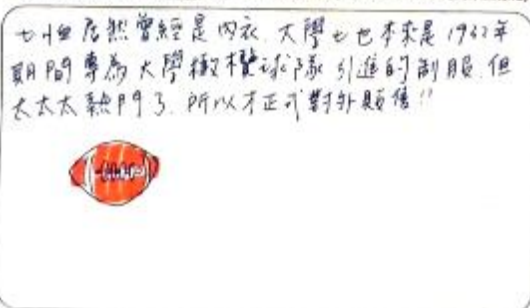 七恤居然曾經是內衣.大學七也本來是1932年
期間專為大學橄欖球隊引進的制服.但
太太太熱門了.所以才正式對外販售!!